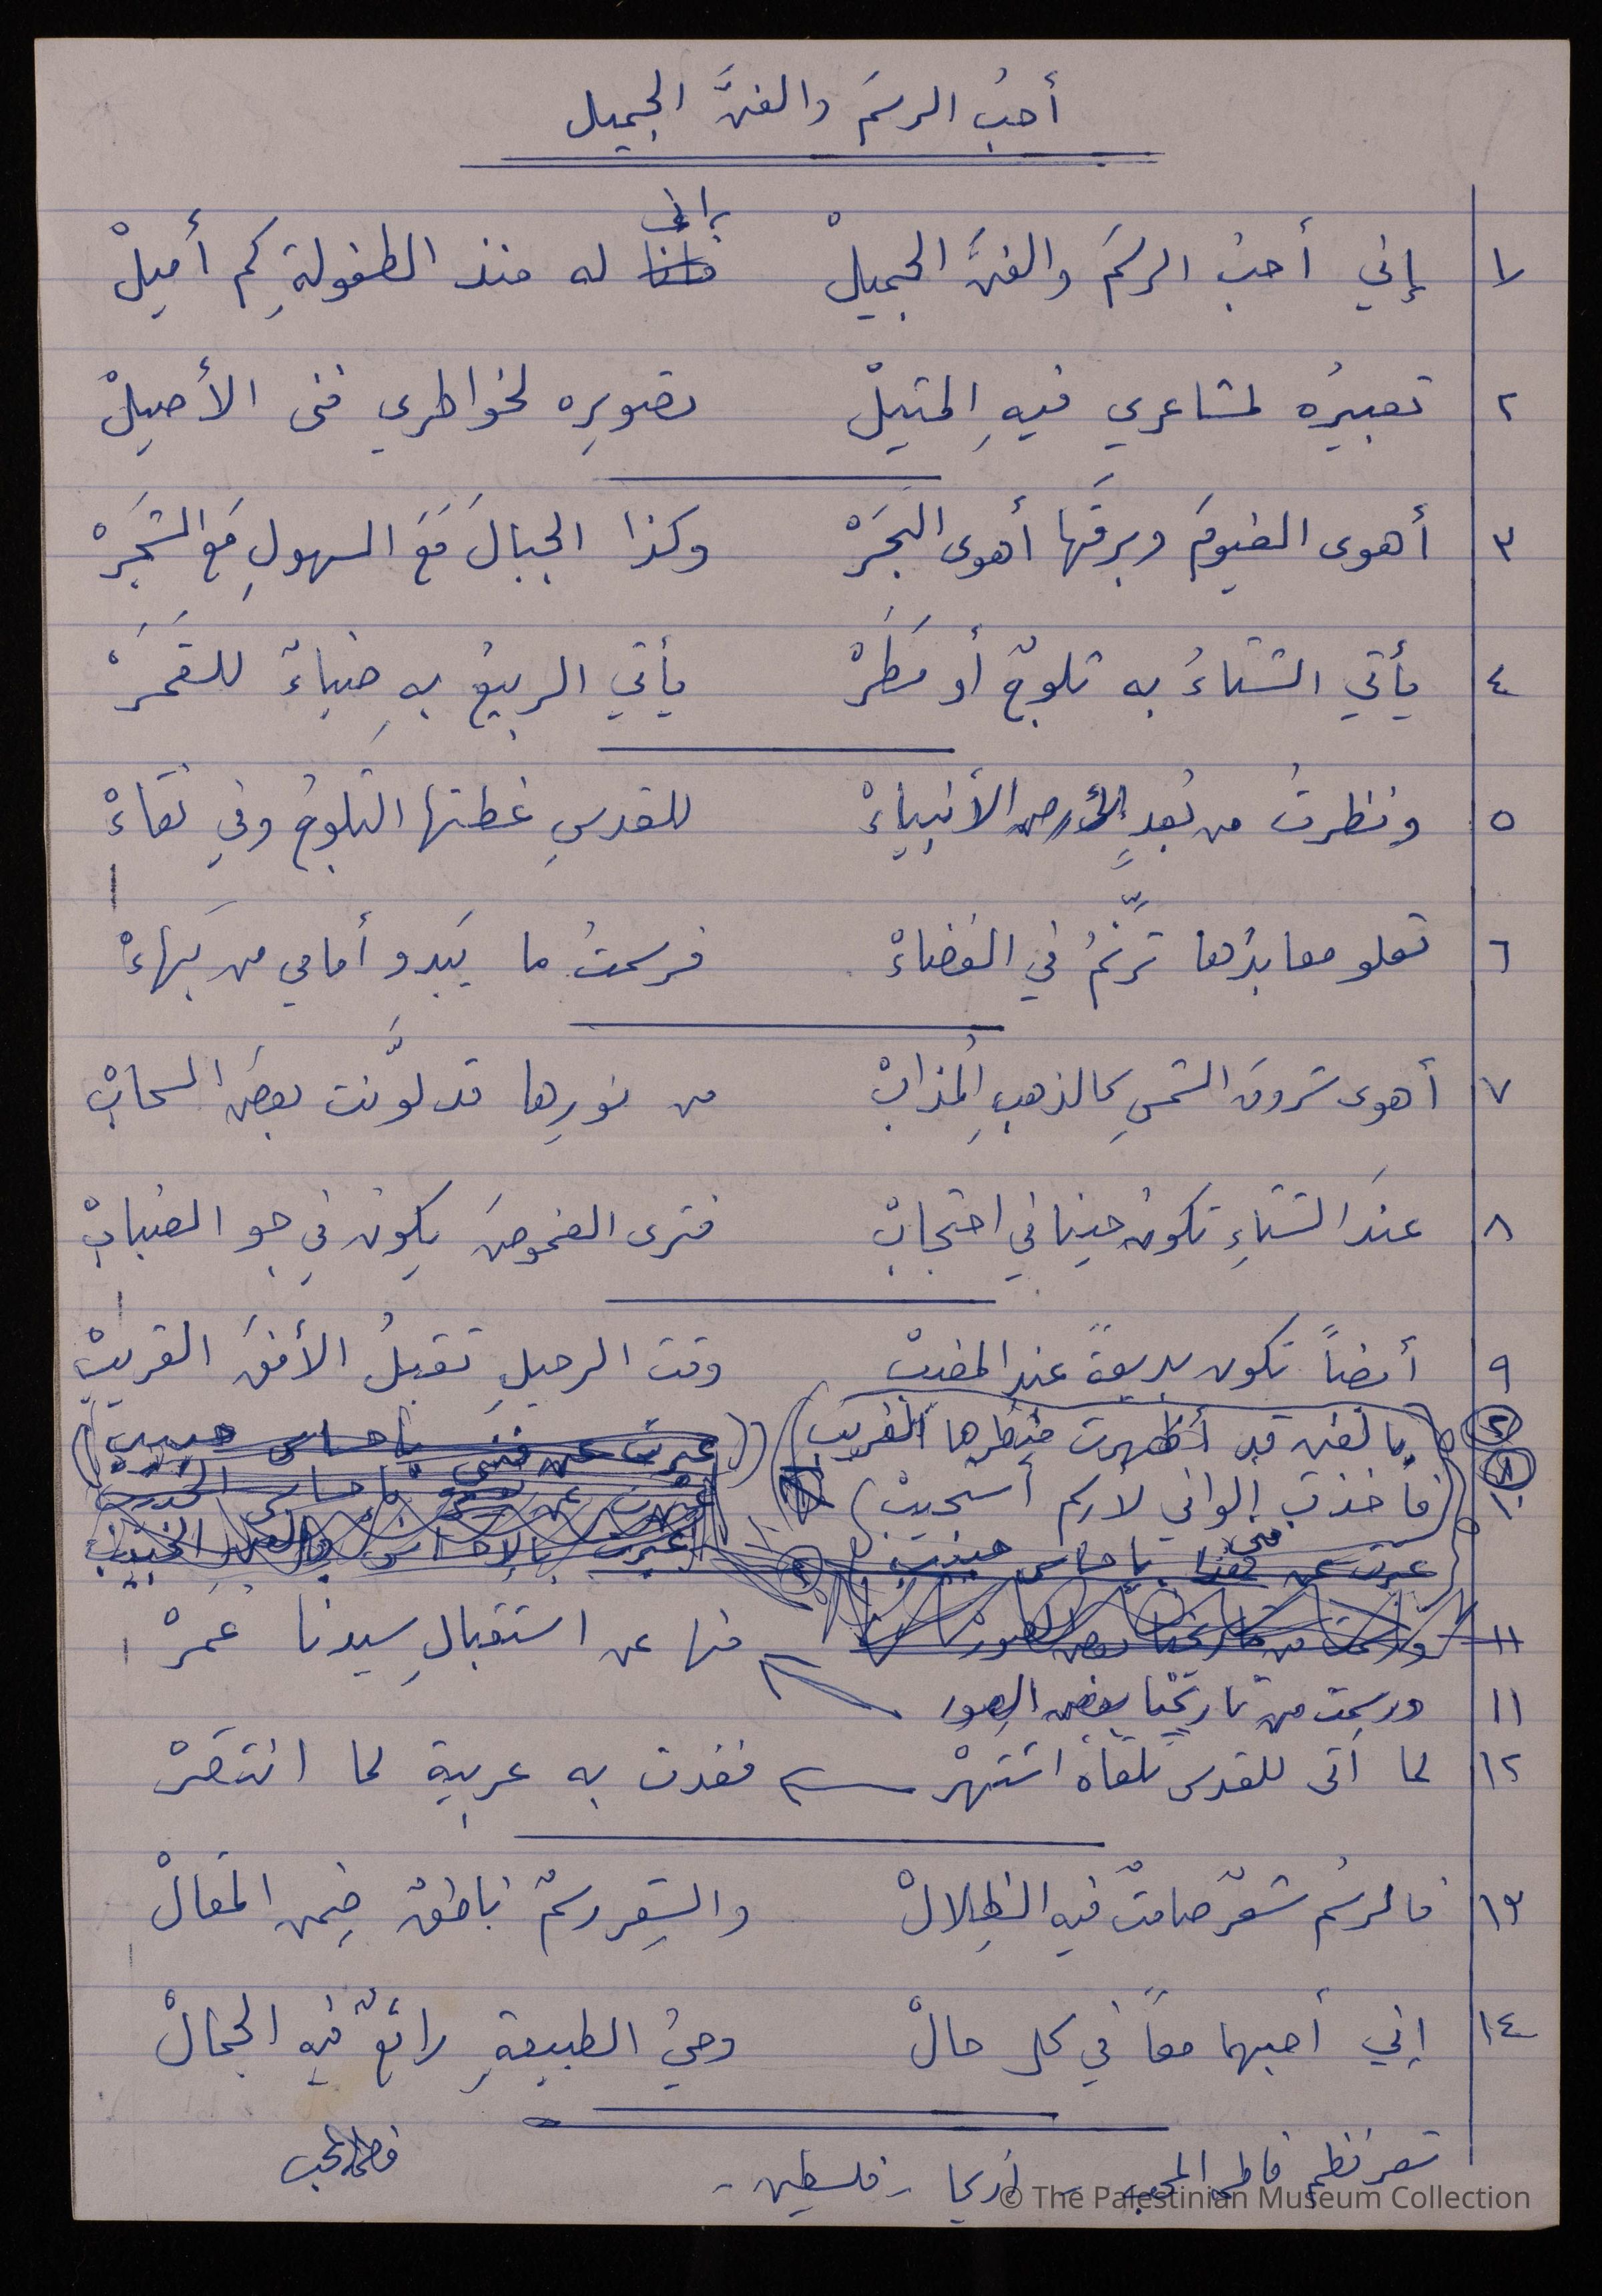 أحبُ الرسمَ والفنَّ الجميل
إني
١ إني أحبُ الرسمَ والفنَّ الجميلْ له منذ الطفولةِ كم أميلْ
٢ تعبيرُه لمشاعري فيهِ المثيلْ تصويرِه لخواطري فنى الأصيلْ
٣ أهوى الغيومَ وبرقَها أهوى البَحَرْ وكذا الجبالَ مَعَ السهولِ مَع الشجَرْ
٤ يأتي الشتاءُ به ثلوجٌ أو مَطَرْ يأتي الربيعُ بهِ ضياءٌ للقمَرْ
٥ ونظرتُ من بُعدٍ لأرض الأنبياءْ للقدسِ غطتها الثلوجُ وفي نقاءْ
٦ تعلو معابدُها ترنّمُ في الفضاءْ فرسمتُ ما يَبدو أمامي من بَهاءْ
٧ أهوى شروقَ الشمسِ كالذهبِ المُذابْ من نورِها قد لوَّنت بعضَ السحابْ
٨ عندَ الشتاءِ تكونُ حينا في احتجابْ فترى الغموضَ يكونُ في جو الضبابْ
٩ أيضاً تكون بديعةً عند المغيبْ وقت الرحيلِ تقبلُ الأفقَ القريبْ
٢ بالفن قد أظهرت منظرها الغريبْ عبرت عن فني بإحساس حبيب
١ ١٠ فأخذت ألواني لارسم أستجيبْ
عبرت عن فني بإحساس حبيب ٢
١١ ورسمت من تاريخنا بعض الصورْ منها عن استقبالِ سيدنا عمرْ
١١ ورسمت من تاريخنا بعض الصور
١٢ لما أتى للقدس تلقاه اشتهرْ فغدت به عربية لما انتصَرْ
١٣ فالرسمُ شعرٌ صامتٌ فيه الظِلالْ والشِعر رسمٌ ناطقٌ ضِمن المقالْ
١٤ إني أحبهما معاً في كل حالْ وحيُ الطبيعةِ رائعٌ فيه الجمالْ
شعر نظم فاطمة المحب - أريحا - فلسطين -
فاطمة المحب
© The Palestinian Museum Collection